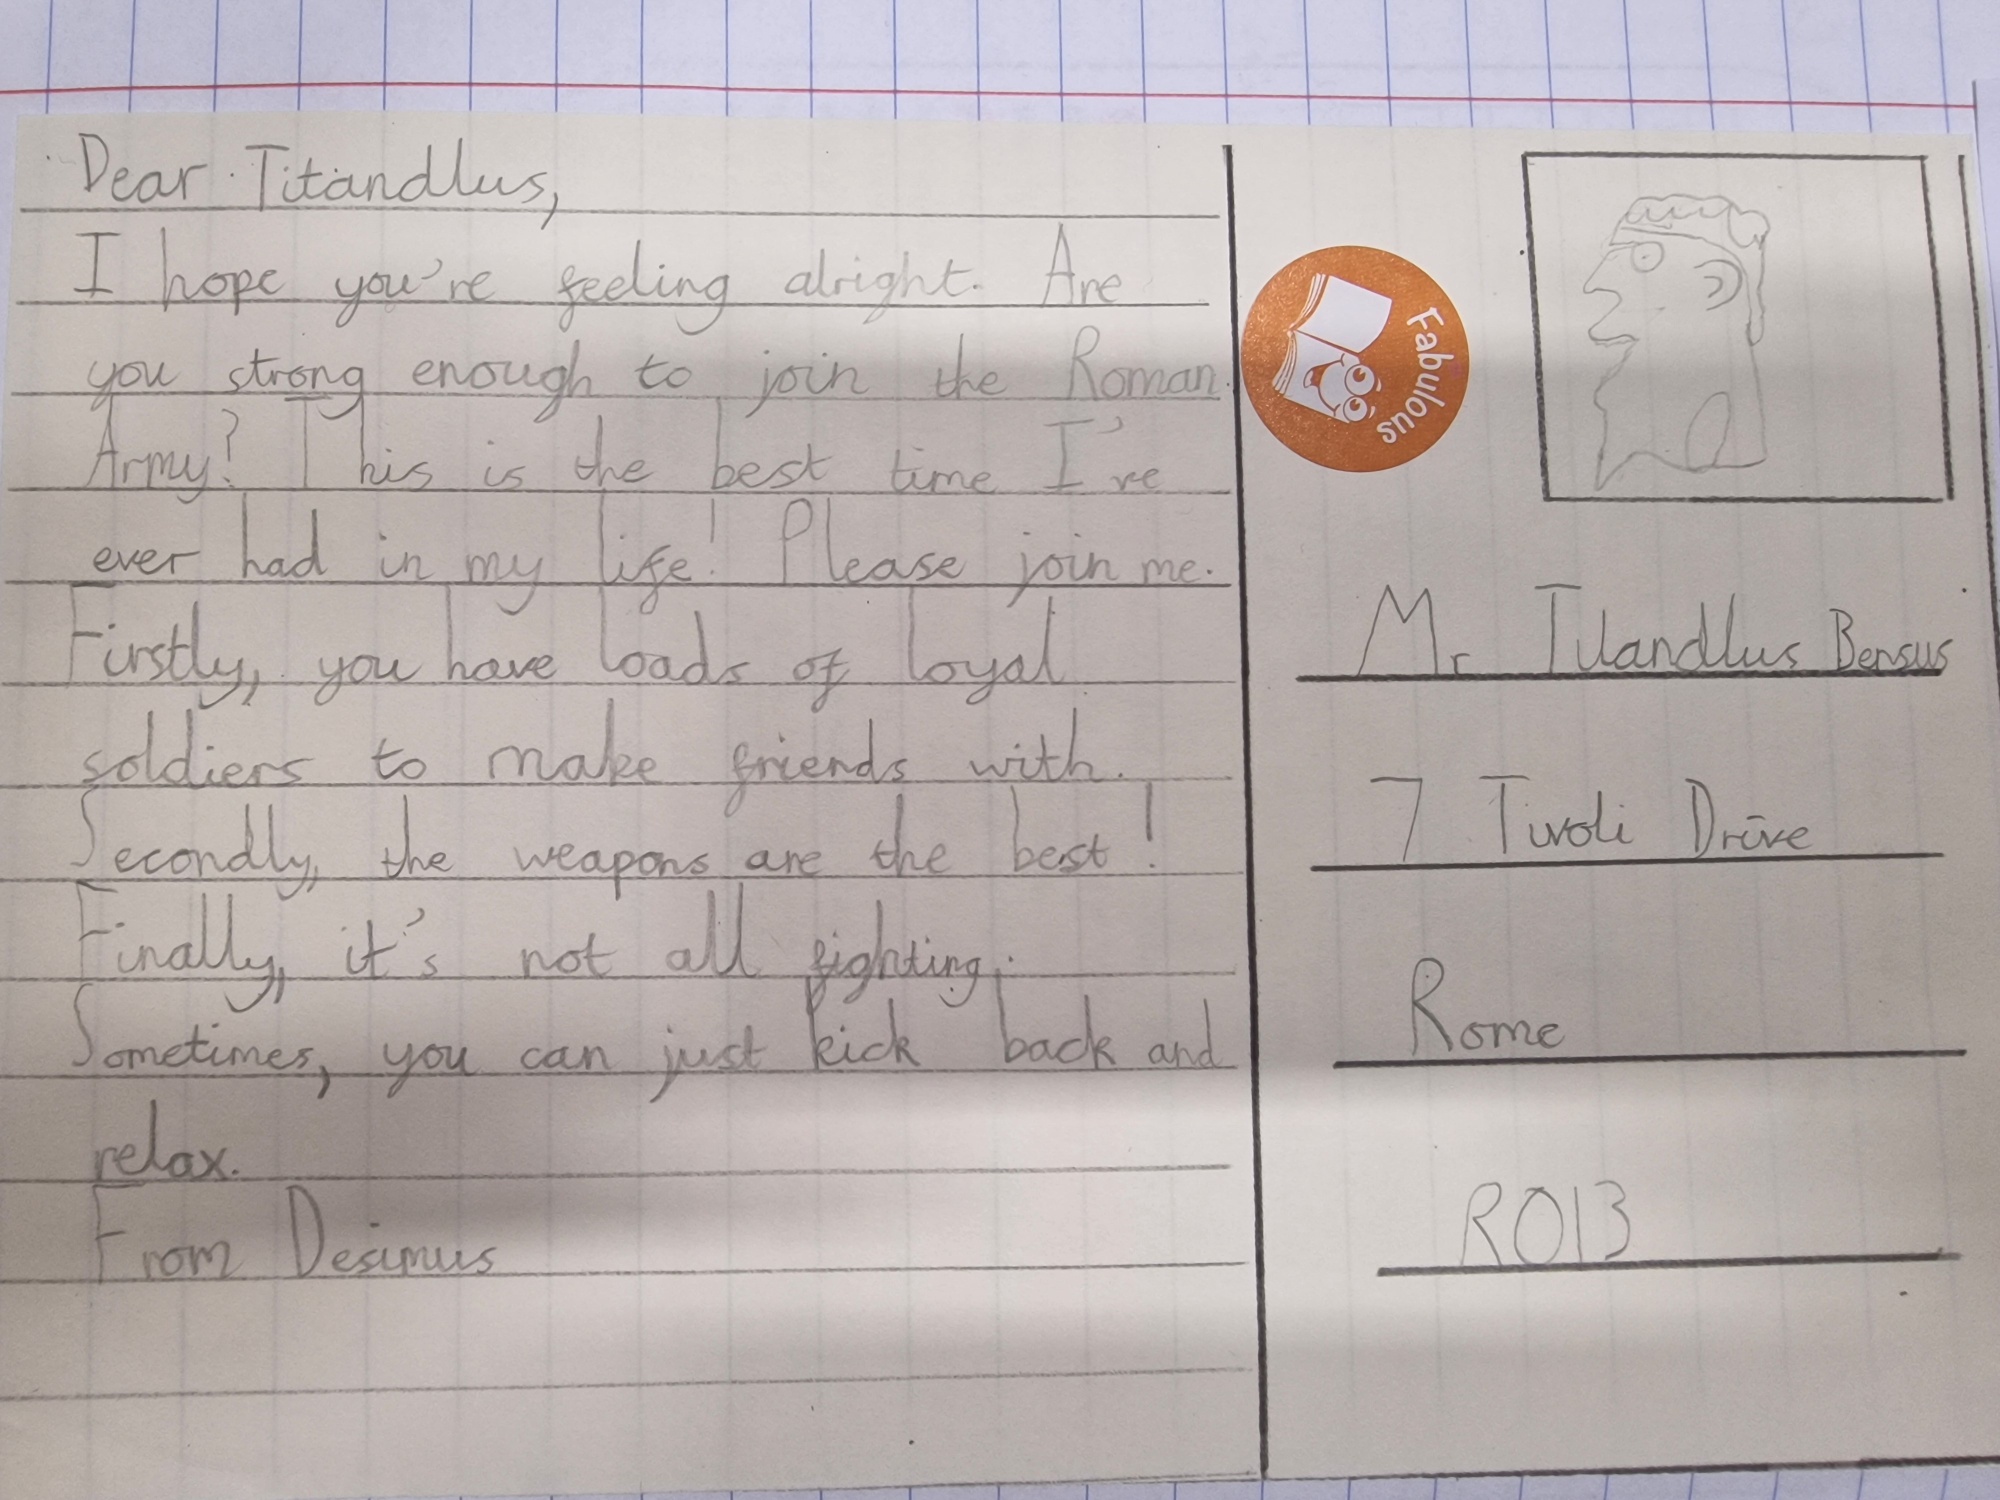 Dear Titandlus,
I hope you're feeling alright. Are
you strong enough to join the Roman
Army? This is the best time I've
ever had in my life! Please join me.
Firstly, you have loads of loyal
soldiers to make friends with.
Secondly, the weapons are the best!
Finally, it's not all fighting.
Sometimes, you can just kick back and
relax.
From Desimus
Fabulous
Mr Titandlus Bensus
7 Tivoli Drive
Rome
RO13